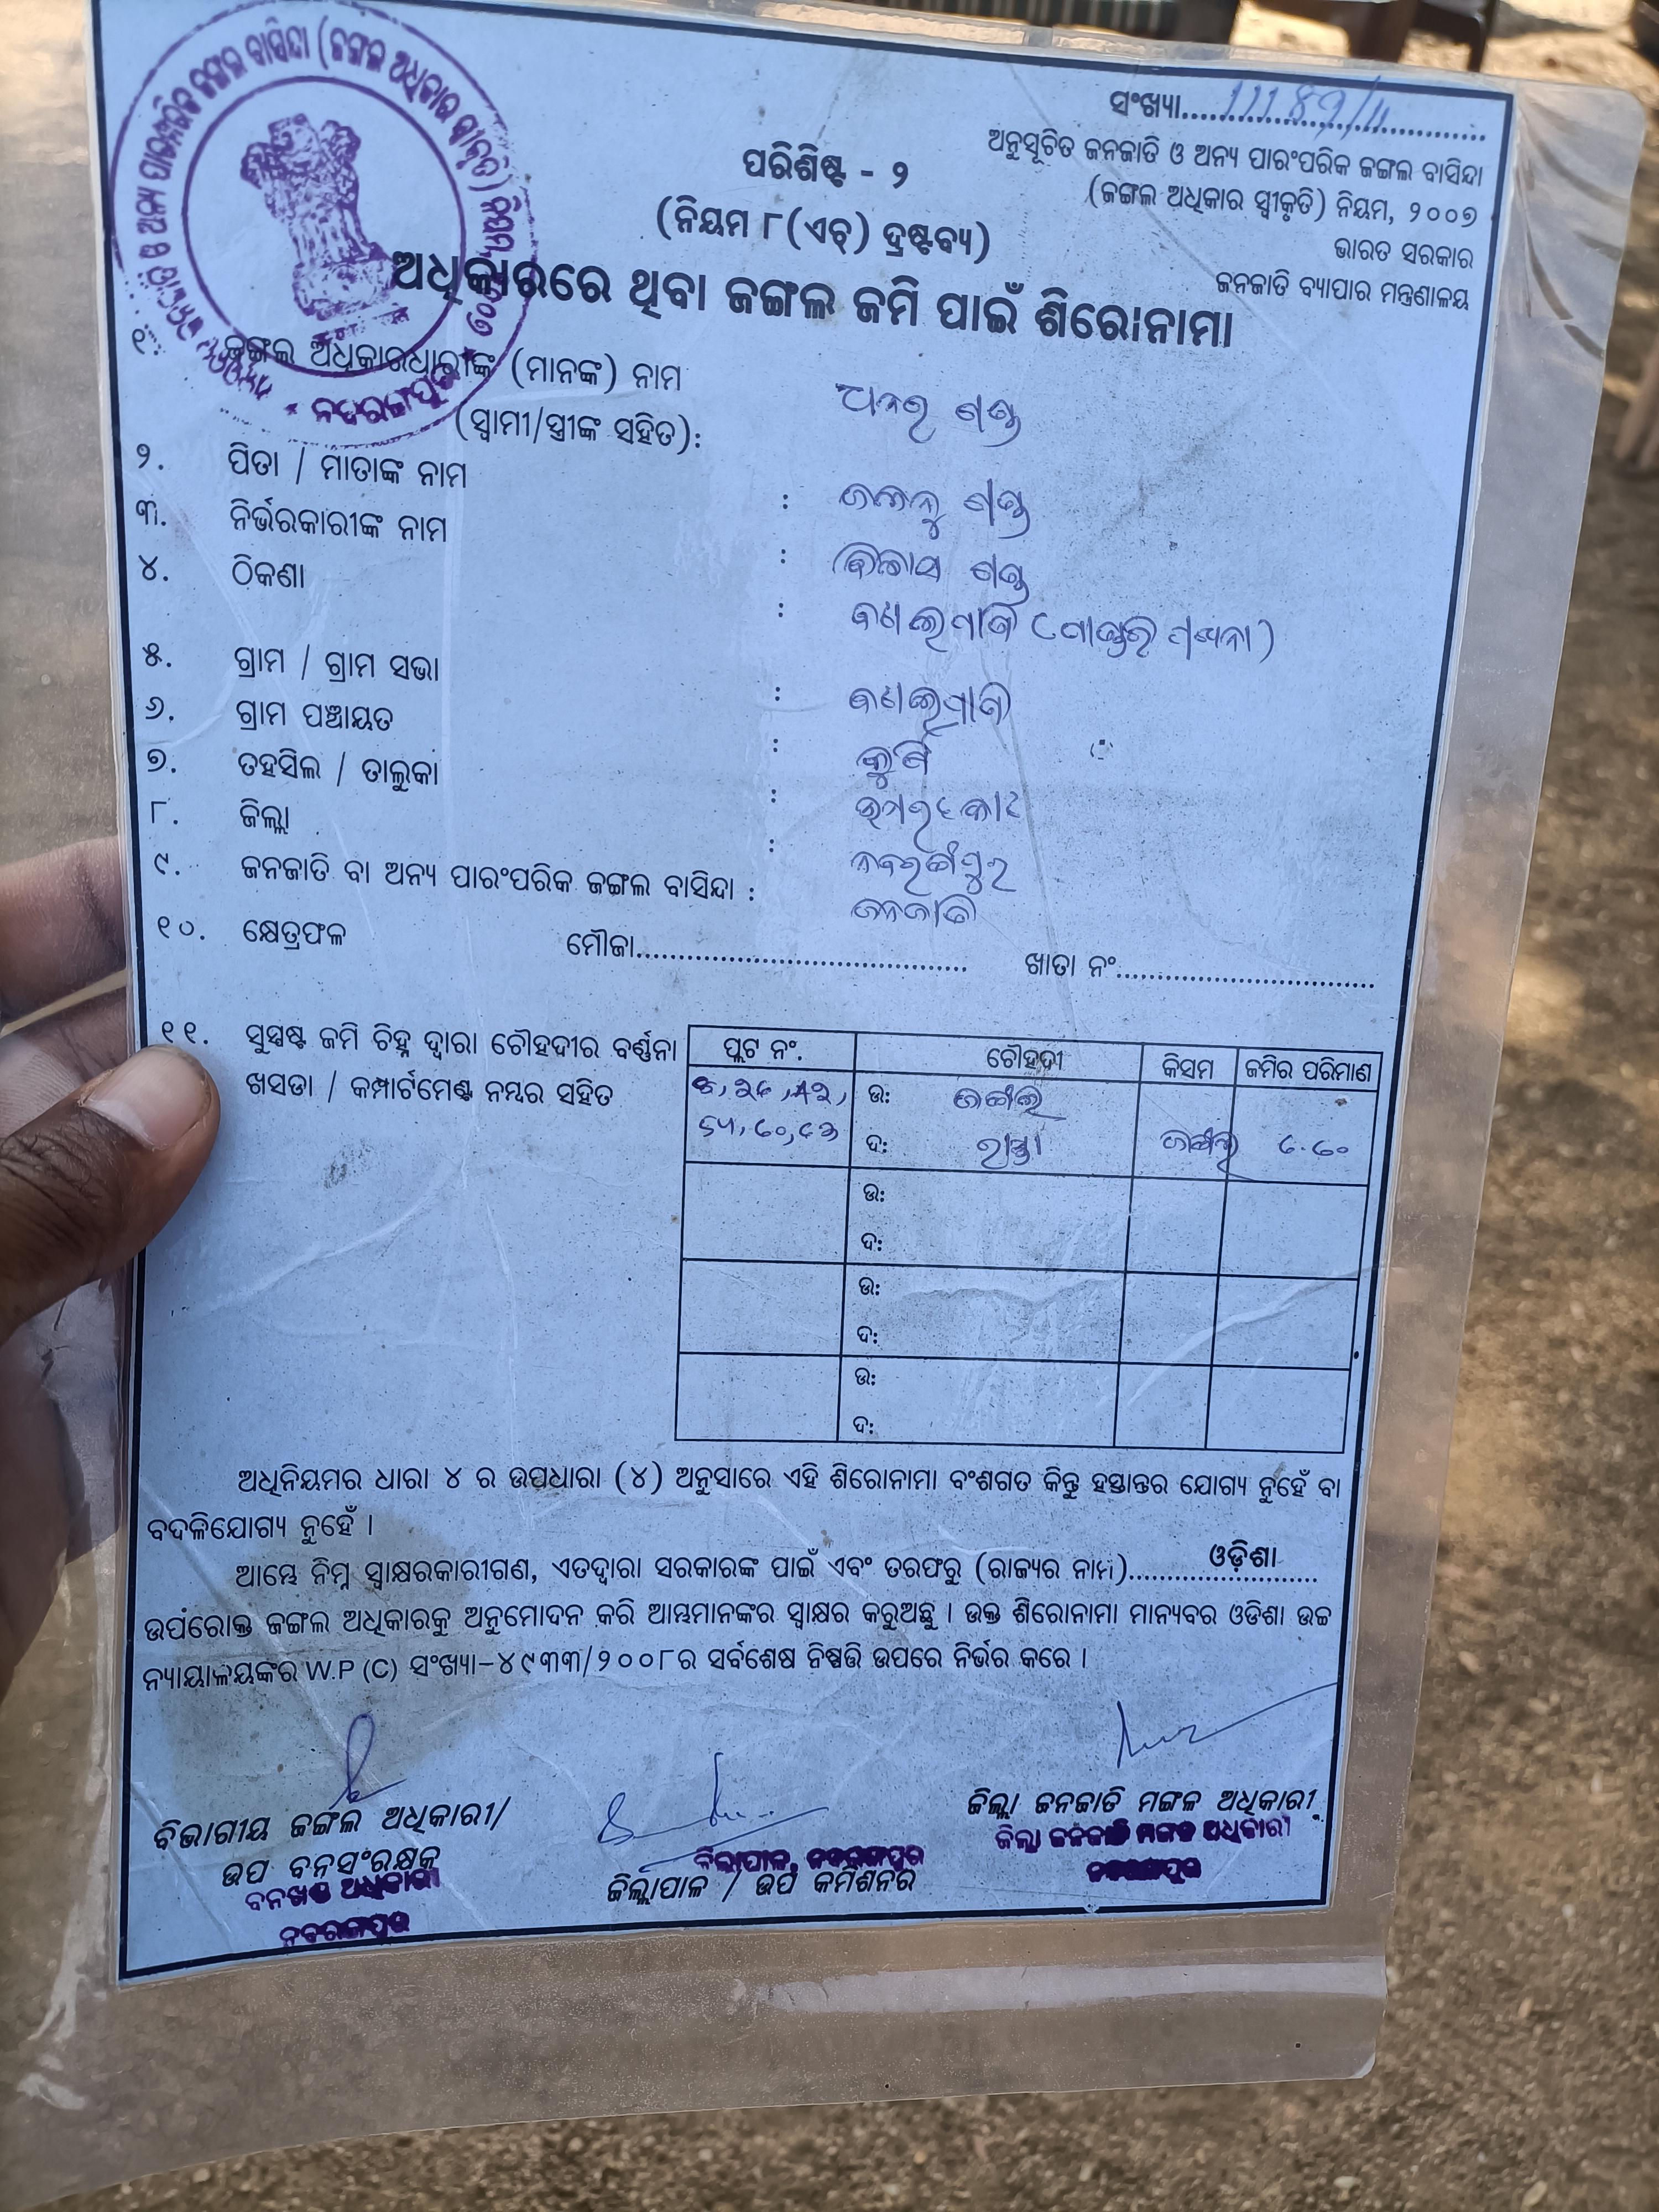 ସଂଖ୍ୟା..........
ଅନୁସୂଚିତ ଜନଜାତି ଓ ଅନ୍ୟ ପାରଂପରିକ ଜଙ୍ଗଲ ବାସିନ୍ଦା
(ଜଙ୍ଗଲ ଅଧିକାର ସ୍ୱୀକୃତି) ନିୟମ, ୨୦୦୭
ଭାରତ ସରକାର
ଜନଜାତି ବ୍ୟାପାର ମନ୍ତ୍ରଣାଳୟ
ପରିଶିଷ୍ଟ - ୨
(ନିୟମ ୮(ଏଚ୍) ଦ୍ରଷ୍ଟବ୍ୟ)
ଅଧିକାରରେ ଥିବା ଜଙ୍ଗଲ ଜମି ପାଇଁ ଶିରୋନାମା
୧. ଜଙ୍ଗଲ ଅଧିକାରଧାରୀଙ୍କ (ମାନଙ୍କ) ନାମ
(ସ୍ୱାମୀ/ସ୍ତ୍ରୀଙ୍କ ସହିତ):
୨. ପିତା / ମାତାଙ୍କ ନାମ :
୩. ନିର୍ଭରକାରୀଙ୍କ ନାମ :
୪. ଠିକଣା :
୫. ଗ୍ରାମ / ଗ୍ରାମ ସଭା :
୬. ଗ୍ରାମ ପଞ୍ଚାୟତ :
୭. ତହସିଲ / ତାଲୁକା : ଉମରକୋଟ
୮. ଜିଲ୍ଲା : ନବରଙ୍ଗପୁର
୯. ଜନଜାତି ବା ଅନ୍ୟ ପାରଂପରିକ ଜଙ୍ଗଲ ବାସିନ୍ଦା : ଜନଜାତି
୧୦. କ୍ଷେତ୍ରଫଳ ମୌଜା.......... ଖାତା ନଂ..........
୧୧. ସୁସ୍ପଷ୍ଟ ଜମି ଚିହ୍ନ ଦ୍ୱାରା ଚୌହଦୀର ବର୍ଣ୍ଣନା
ଖସଡା / କମ୍ପାର୍ଟମେଣ୍ଟ ନମ୍ବର ସହିତ
ପ୍ଲଟ ନଂ. ଚୌହଦୀ କିସମ ଜମିର ପରିମାଣ
ଉ: ଜଙ୍ଗଲ
ଦ: ରାସ୍ତା ଜଙ୍ଗଲ
ଉ:
ଦ:
ଉ:
ଦ:
ଉ:
ଦ:
ଅଧିନିୟମର ଧାରା ୪ ର ଉପଧାରା (୪) ଅନୁସାରେ ଏହି ଶିରୋନାମା ବଂଶଗତ କିନ୍ତୁ ହସ୍ତାନ୍ତର ଯୋଗ୍ୟ ନୁହେଁ ବା
ବଦଳିଯୋଗ୍ୟ ନୁହେଁ ।
ଆମ୍ଭେ ନିମ୍ନ ସ୍ୱାକ୍ଷରକାରୀଗଣ, ଏତଦ୍ୱାରା ସରକାରଙ୍କ ପାଇଁ ଏବଂ ତରଫରୁ (ରାଜ୍ୟର ନାମ)....ଓଡ଼ିଶା....
ଉପରୋକ୍ତ ଜଙ୍ଗଲ ଅଧିକାରକୁ ଅନୁମୋଦନ କରି ଆମ୍ଭମାନଙ୍କର ସ୍ୱାକ୍ଷର କରୁଅଛୁ । ଉକ୍ତ ଶିରୋନାମା ମାନ୍ୟବର ଓଡିଶା ଉଚ୍ଚ
ନ୍ୟାୟାଳୟଙ୍କର W.P (C) ସଂଖ୍ୟା-୪୯୩୩/୨୦୦୮ର ସର୍ବଶେଷ ନିଷ୍ପତ୍ତି ଉପରେ ନିର୍ଭର କରେ ।
ବିଭାଗୀୟ ଜଙ୍ଗଲ ଅଧିକାରୀ/
ଉପ ବନସଂରକ୍ଷକ
ବନଖଣ୍ଡ ଅଧିକାରୀ
ନବରଙ୍ଗପୁର
ଜିଲ୍ଲାପାଳ, ନବରଙ୍ଗପୁର
ଜିଲ୍ଲାପାଳ / ଉପ କମିଶନର
ଜିଲ୍ଲା ଜନଜାତି ମଙ୍ଗଳ ଅଧିକାରୀ
ଜିଲ୍ଲା ଜନଜାତି ମଙ୍ଗଳ ଅଧିକାରୀ
ନବରଙ୍ଗପୁର